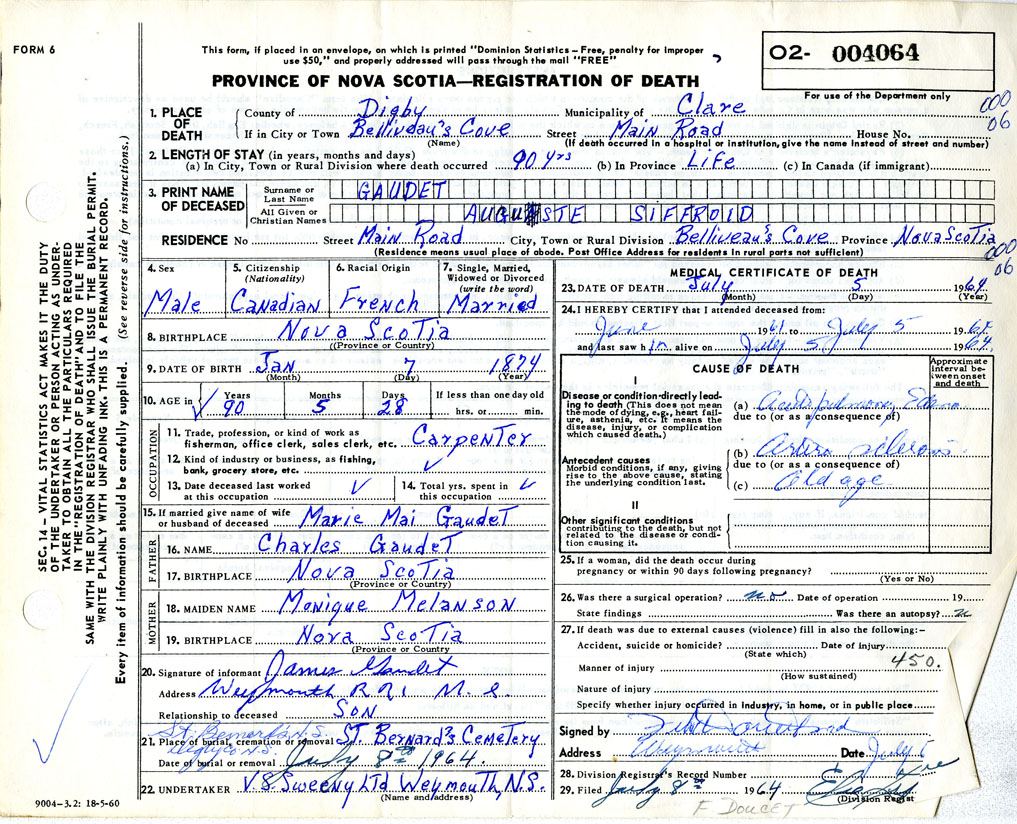 FORM 6
This form, if placed in an envelope, on which is printed "Dominion Statistics – Free, penalty for improper
use $50," and properly addressed will pass through the mail "FREE"
O2- 004064
For use of the Department only
PROVINCE OF NOVA SCOTIA—REGISTRATION OF DEATH
000
06
SEC. 14 – VITAL STATISTICS ACT MAKES IT THE DUTY
OF THE UNDERTAKER OR PERSON ACTING AS UNDER-
TAKER TO OBTAIN ALL THE PARTICULARS REQUIRED
IN THE "REGISTRATION OF DEATH" AND TO FILE THE
SAME WITH THE DIVISION REGISTRAR WHO SHALL ISSUE THE BURIAL PERMIT.
WRITE PLAINLY WITH UNFADING INK. THIS IS A PERMANENT RECORD.
Every item of information should be carefully supplied. (See reverse side for instructions.)
1. PLACE OF DEATH County of Digby Municipality of Clare
If in City or Town Belliveau's Cove Street Main Road House No.
(Name) (If death occurred in a hospital or institution, give the name instead of street and number)
2. LENGTH OF STAY (in years, months and days)
(a) In City, Town or Rural Division where death occurred 90 yrs (b) In Province Life (c) In Canada (if immigrant)
3. PRINT NAME OF DECEASED Surname or Last Name GAUDET
All Given or Christian Names AUGUSTE SIFFROID
RESIDENCE No Street Main Road City, Town or Rural Division Belliveau's Cove Province Nova Scotia
(Residence means usual place of abode. Post Office Address for residents in rural parts not sufficient)
000
06
4. Sex 5. Citizenship (Nationality) 6. Racial Origin 7. Single, Married, Widowed or Divorced (write the word)
Male Canadian French Married
8. BIRTHPLACE Nova Scotia
(Province or Country)
9. DATE OF BIRTH Jan 7 1874
(Month) (Day) (Year)
10. AGE in Years Months Days If less than one day old
90 5 28 hrs. or min.
OCCUPATION
11. Trade, profession, or kind of work as
fisherman, office clerk, sales clerk, etc. Carpenter
12. Kind of industry or business, as fishing,
bank, grocery store, etc. ✓
13. Date deceased last worked at this occupation ✓ 14. Total yrs. spent in this occupation ✓
15. If married give name of wife
or husband of deceased Marie Mai Gaudet
FATHER
16. NAME Charles Gaudet
17. BIRTHPLACE Nova Scotia
(Province or Country)
MOTHER
18. MAIDEN NAME Monique Melanson
19. BIRTHPLACE Nova Scotia
(Province or Country
20. Signature of informant James Gaudet
Address Weymouth RR1 N.S.
Relationship to deceased Son
St. Bernard's N.S.
21. Place of burial, cremation or removal St. Bernard's Cemetery
Date of burial or removal July 8th 1964.
22. UNDERTAKER V.S. Sweeny Ltd Weymouth, N.S.
(Name and address)
9004-3.2: 18-5-60
MEDICAL CERTIFICATE OF DEATH
23. DATE OF DEATH July 5 1964
(Month) (Day) (Year)
24. I HEREBY CERTIFY that I attended deceased from:
June 1961 to July 5 1964
and last saw him alive on July 5, 1964.
CAUSE OF DEATH
Approximate interval be- tween onset and death
I
Disease or condition directly lead-
ing to death (This does not mean
the mode of dying, e.g., heart fail-
ure, asthenia, etc. It means the
disease, injury, or complication
which caused death.)
(a) Acute pulmonary Edema
due to (or as a consequence of)
Antecedent causes
Morbid conditions, if any, giving
rise to the above cause, stating
the underlying condition last.
(b) Arterio sclerosis
due to (or as a consequence of)
(c) Old age
II
Other significant conditions
contributing to the death, but not
related to the disease or condi-
tion causing it.
25. If a woman, did the death occur during
pregnancy or within 90 days following pregnancy?
(Yes or No)
26. Was there a surgical operation? no Date of operation 19
State findings Was there an autopsy? n
27. If death was due to external causes (violence) fill in also the following:–
Accident, suicide or homicide? Date of injury
(State which)
450.
Manner of injury
(How sustained)
Nature of injury
Specify whether injury occurred in industry, in home, or in public place
Signed by
Address Weymouth Date July
28. Division Registrar's Record Number
29. Filed July 8th 1964
(Division Regist
F DOUCET